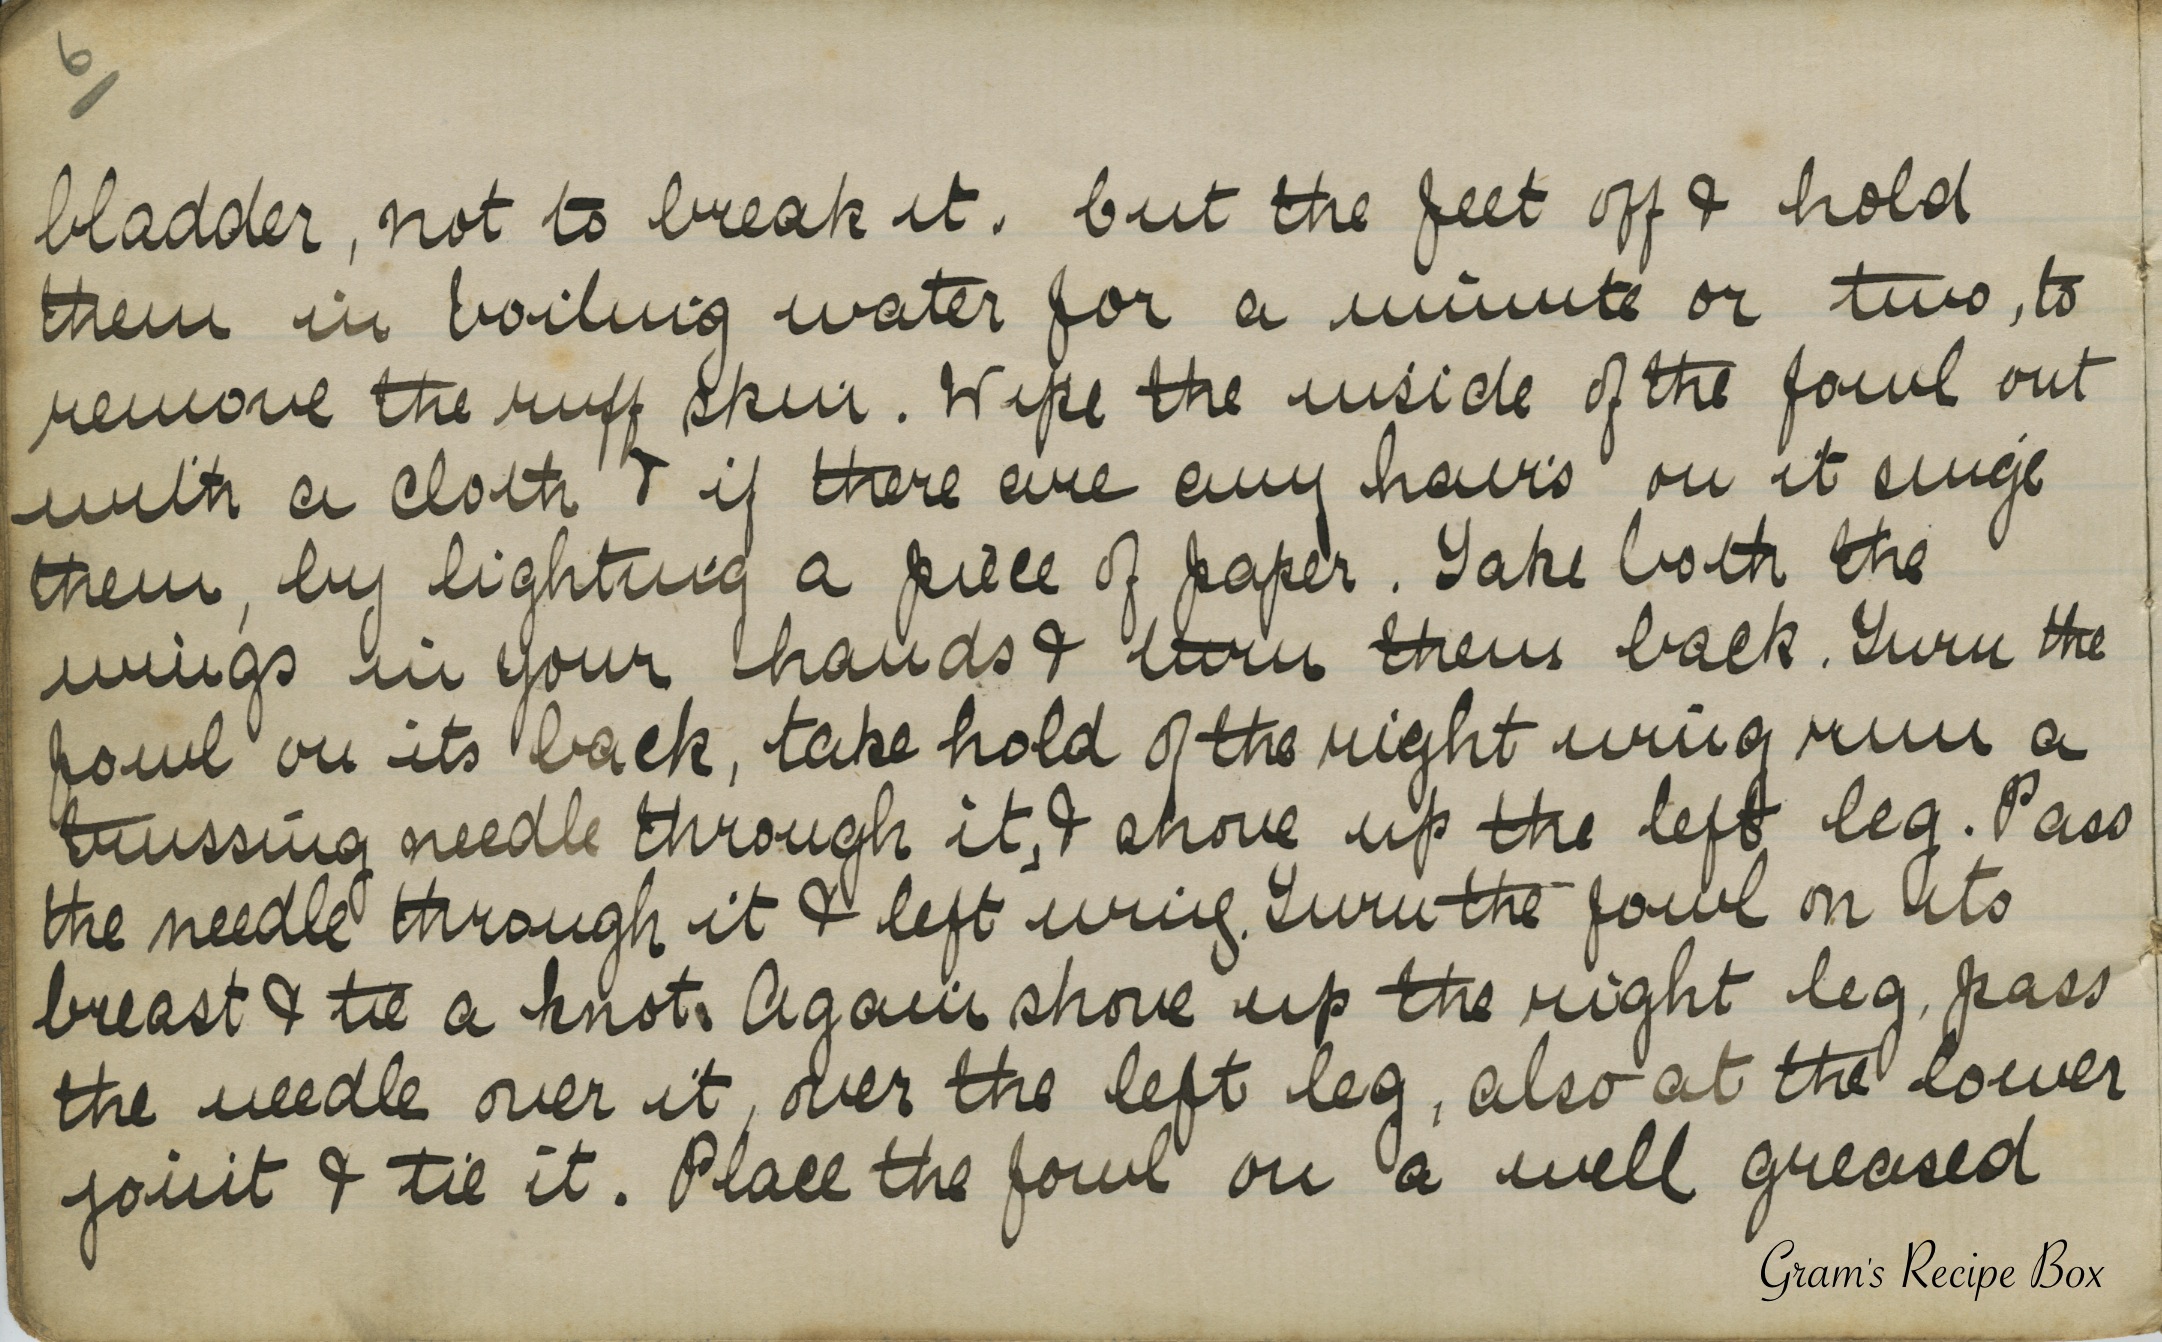 6/
bladder, not to break it. but the feet off & hold
them in boiling water for a minute or two, to
remove the ruff skin. Wipe the inside of the fowl out
with a cloth & if there are any hairs on it singe
them, by lighting a piece of paper. Take both the
wings in your hands & turn them back. Turn the
fowl on its back, take hold of the right wing run a
trussing needle through it, & shove up the left leg. Pass
the needle through it & left wing. Turn the fowl on its
breast & tie a knot. Again shove up the right leg, pass
the needle over it, over the left leg, also at the lower
joint & tie it. Place the fowl on a well greased
Gram's Recipe Box